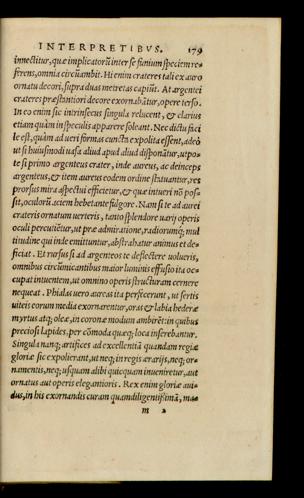 INTERPRETIBVS. 179
innectitur, quæ implicatorũ inter se funium speciem re-
frens, omnia circũambit. Hi enim crateres tali ex auro
ornatu decori, supra duas metretas capiũt. At argentei
crateres præstantiori decore exornabãtur, opere terso.
In eo enim sic intrinsecus singula relucent, & clarius
etiam quàm in speculis apparere soleant. Nec dictu faci
le est, quàm ad ueri formas cuncta expolita essent, adeò
ut si huiusmodi uasa aliud apud aliud disponãtur, utpo-
te si primo argenteus crater, inde aureus, ac deinceps
argenteus, & item aureus eodem ordine statuantur, res
prorsus mira aspectui efficietur, & quæ intueri nõ pos-
sit, oculorũ aciem hebetante fulgore. Nam si te ad aurei
crateris ornatum uerteris, tanto splendore uarij operis
oculi percutiẽtur, ut præ admiratione, radiorumq; mul
titudine qui inde emittuntur, abstrahatur animus et de-
ficiat. Et rursus si ad argenteos te deflectere uolueris,
omnibus circũmicantibus maior luminis effusio ita oc-
cupat intuentem, ut omnino operis structuram cernere
nequeat. Phialas uero aureas ita perfecerunt, ut sertis
uiteis eorum media exornarentur, oras & labia hederæ
myrtus atq; oleæ, in coronæ modum ambirẽt: in quibus
preciosi lapides, per cõmoda quæq; loca inserebantur.
Singula nanq; artifices ad excellentiã quandam regiæ
gloriæ sic expolierant, ut neq; in regis ærarijs, neq; or-
namentis, neq; usquam alibi quicquam inueniretur, aut
ornatus aut operis elegantioris. Rex enim gloriæ aui-
dus, in his exornandis curam quam diligentißimã, ma-
m 2